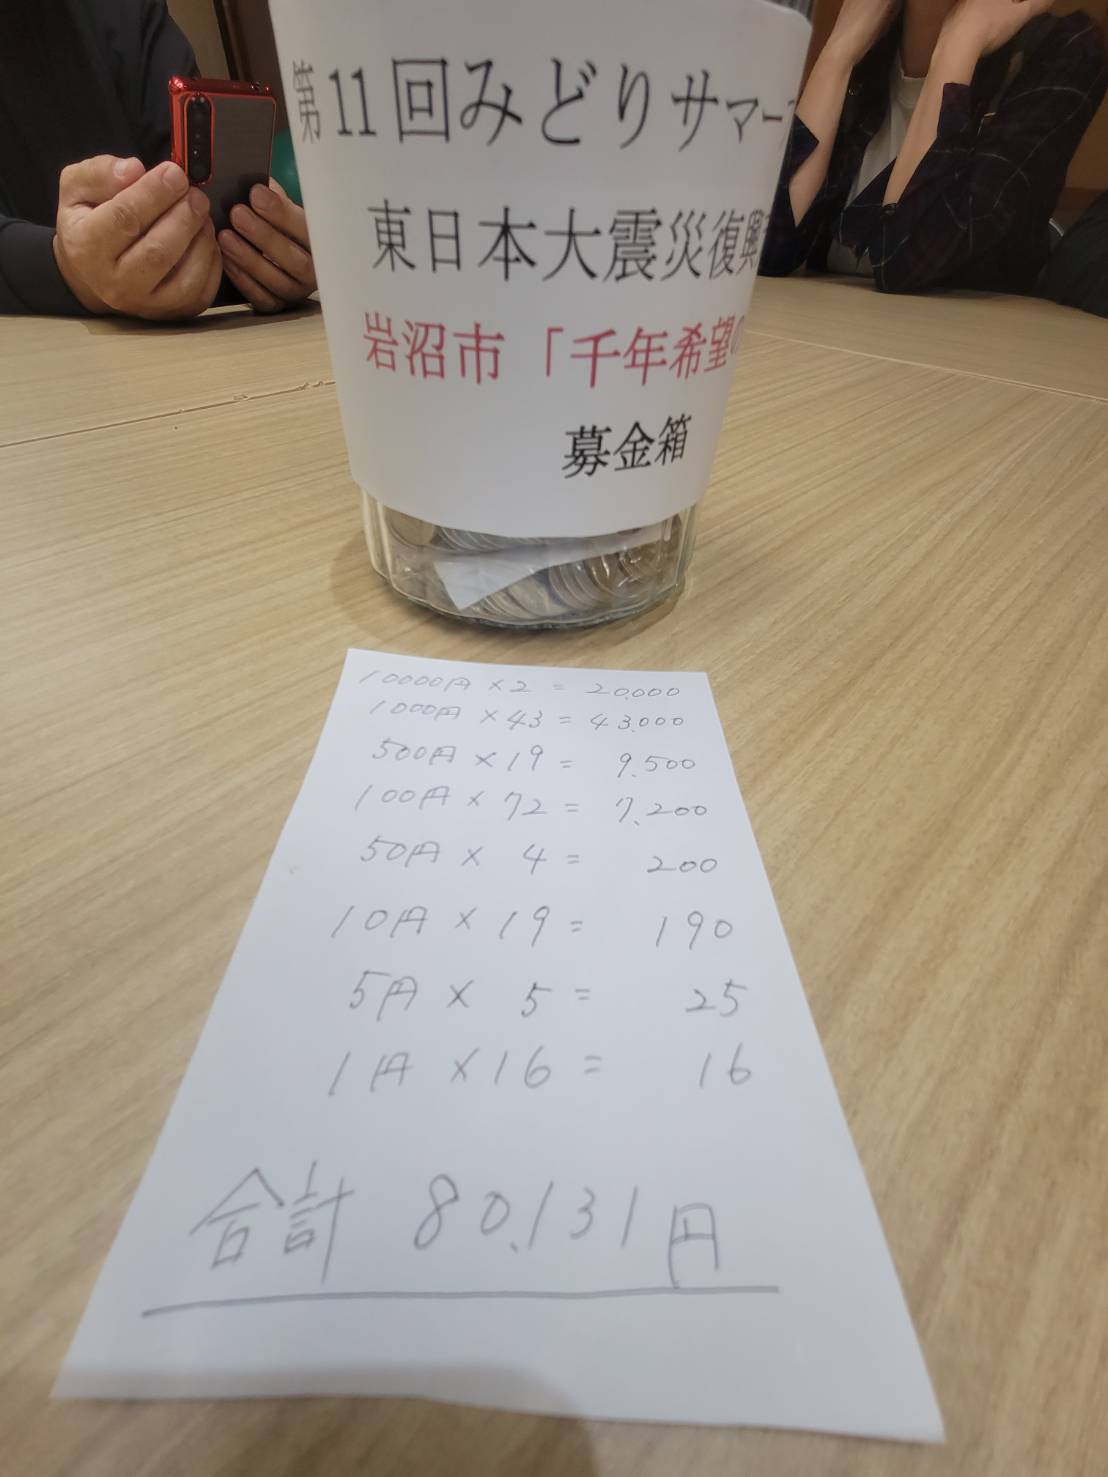 第11回みどりサマー
東日本大震災復興
岩沼市「千年希望の
募金箱
10000円×2=20,000
1000円×43=43,000
500円×19=9,500
100円×72=7,200
50円×4=200
10円×19=190
5円×5=25
1円×16=16
合計 80,131円